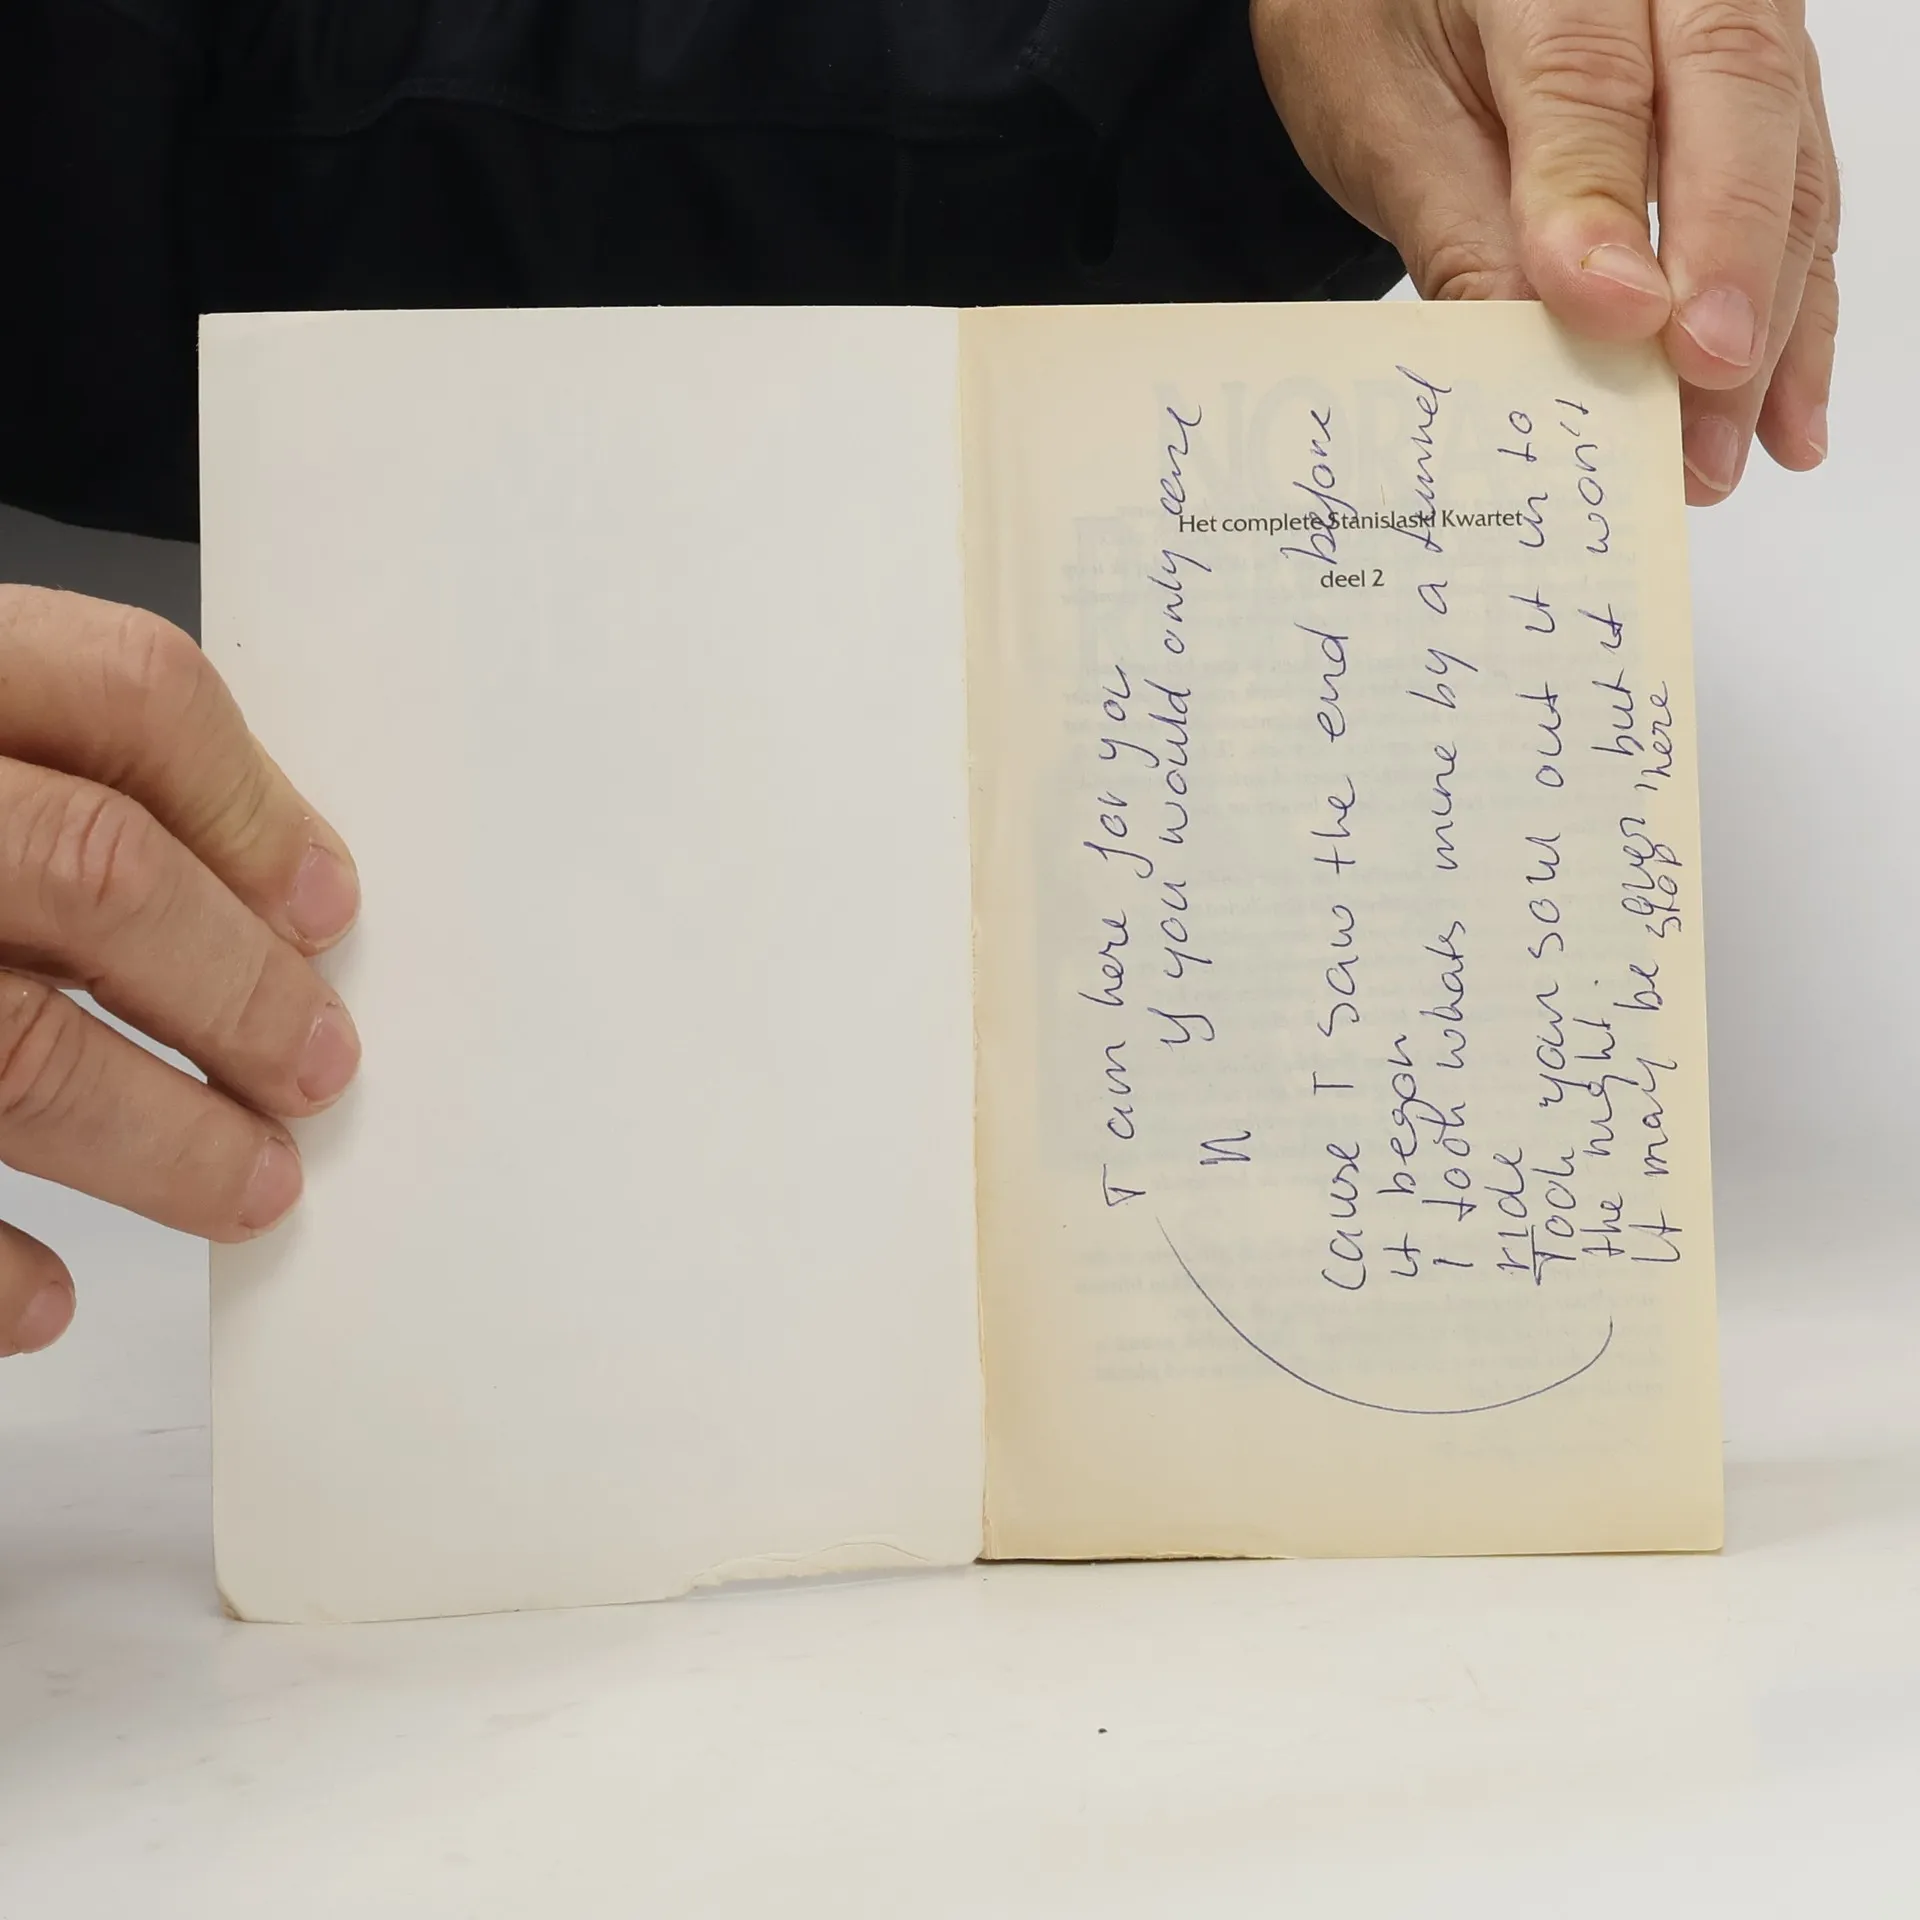 Het complete Stanislaski Kwartet
deel 2
I am here for you
if you would only care
"
Cause I saw the end before
it began
I took whats mine by a tunnel
ride
Took your soul out it in to
the night
It may be over but it won't
stop there